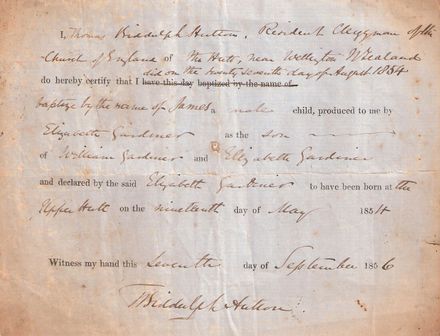 I, Thomas Biddulph Hutton, Resident Clergyman of the
Church of England of the Hutt, near Wellington N Zealand
did on the twenty seventh day of August 1854
do hereby certify that I have this day baptized by the name of
baptize by the name of James a male child, produced to me by
Elizabeth Gardiner as the son
of William Gardiner and Elizabeth Gardiner
and declared by the said Elizabeth Gardiner to have been born at the
Upper Hutt on the nineteenth day of May 1854
Witness my hand this Seventh day of September 1856
TBiddulph Hutton.